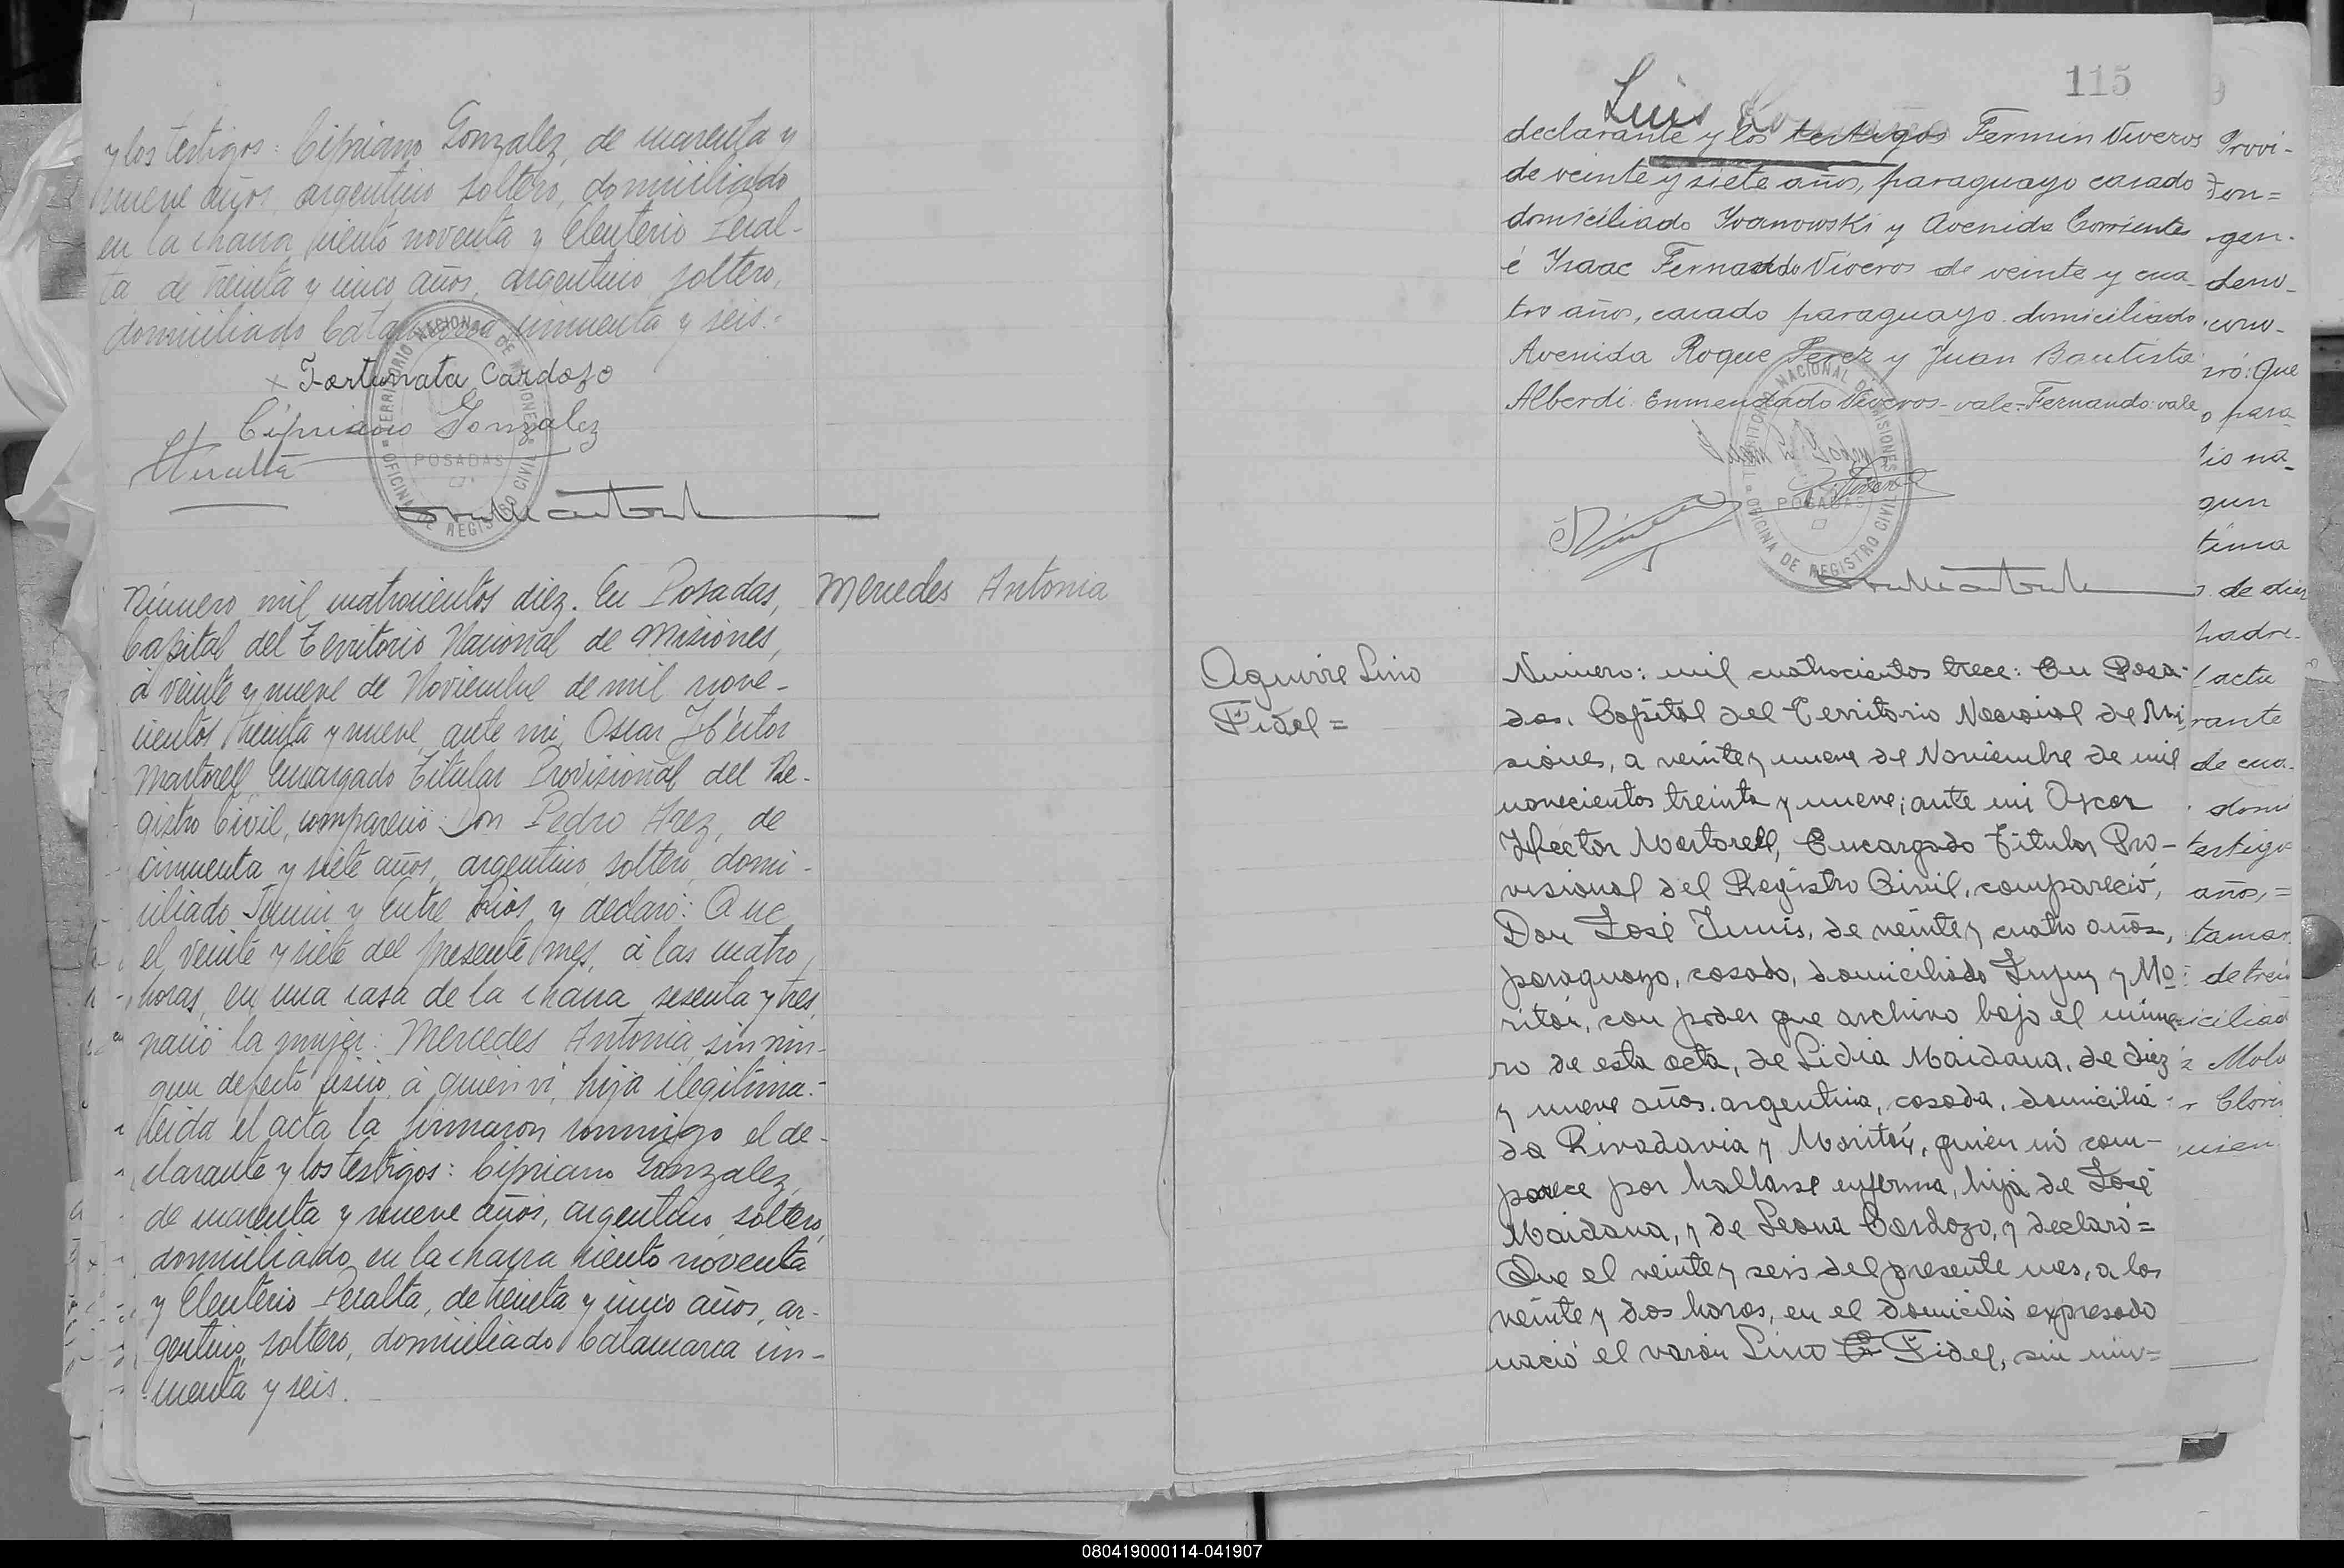 y los testigos: Cipriano Gonzalez, de cuarenta y
nueve años, argentino soltero, domiciliado
en la chacra ciento noventa y Eleuterio Peral-
ta de treinta y cinco años, argentino soltero,
domiciliado Catamarca cincuenta y seis.-
x Fortunata Cardozo
Cipriano Gonzalez
TERRITORIO NACIONAL DE MISIONES
OFICINA DE REGISTRO CIVIL
POSADAS
Número mil cuatrocientos diez. En Posadas,
Capital del Territorio Nacional de Misiones,
á veinte y nueve de Noviembre de mil nove-
cientos treinta y nueve, ante mi, Oscar Héctor
Martorell, Encargado Titular Provisional del Re-
gistro Civil, compareció: Don Pedro Arez, de
cincuenta y siete años, argentino, soltero, domi-
ciliado Junin y Entre Rios, y declaró: Que
el veinte y siete del presente mes, á las cuatro
horas, en una casa de la chacra sesenta y tres,
nació la mujer: Mercedes Antonia, sin nin-
gun defecto fisico, á quien vi, hija ilegitima.-
Leida el acta la firmaron conmigo el de-
clarante y los testigos: Cipriano Gonzalez,
de cuarenta y nueve años, argentino, soltero,
domiciliado en la chacra ciento noventa
y Eleuterio Peralta, de treinta y cinco años, ar-
gentino, soltero, domiciliado Catamarca cin-
cuenta y seis.
Mercedes Antonia
115
Luis
declarante y los testigos Fermin Viveros
de veinte y siete años, paraguayo casado
domiciliado Ivanowski y Avenida Corrientes
é Isaac Fernando Viveros de veinte y cua-
tro años, casado paraguayo domiciliado
Avenida Roque Perez y Juan Bautista
Alberdi. Enmendado Viveros-vale-Fernando: vale
TERRITORIO NACIONAL DE MISIONES
OFICINA DE REGISTRO CIVIL
POSADAS
Aguirre Lino
Fidel=
Número: mil cuatrocientos trece: En Posa-
das, Capital del Territorio Nacional de Mi-
siones, a veinte y nueve de Noviembre de mil
novecientos treinta y nueve; ante mi Oscar
Héctor Martorell, Encargado Titular Pro-
visional del Registro Civil, compareció,
Don José, de veinte y cuatro años,
paraguayo, casado, domiciliado y Mo
ritán, con poder que archivo bajo el núme-
ro de esta acta, de Lidia Maidana, de diez
y nueve años, argentina, casada, domicilia-
da Rivadavia y Moritán, quien nó com-
parece por hallarse enferma, hija de José
Maidana, y de Leona Cardozo, y declaró=
Que el veinte y seis del presente mes, a las
veinte y dos horas, en el domicilio expresado
nació el varón Lino Fidel, sin nin=
Provi-
gen-
deno-
ró: Que
o para
gun
tima
de diez
padre-
l acta
rante
de cua-
domi
testigo
años,=
de trei
iciliad